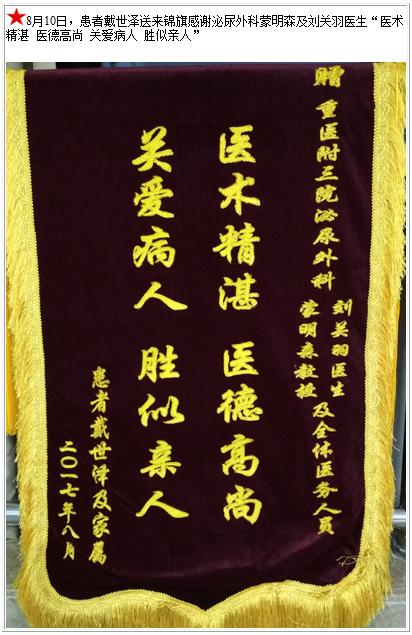 8月10日，患者戴世泽送来锦旗感谢泌尿外科蒙明森及刘关羽医生“医术
精湛 医德高尚 关爱病人 胜似亲人”
赠 重医附三院泌尿外科
刘关羽医生
蒙明森教授
及全体医务人员
医术精湛 医德高尚
关爱病人 胜似亲人
患者戴世泽及家属
二〇一七年八月